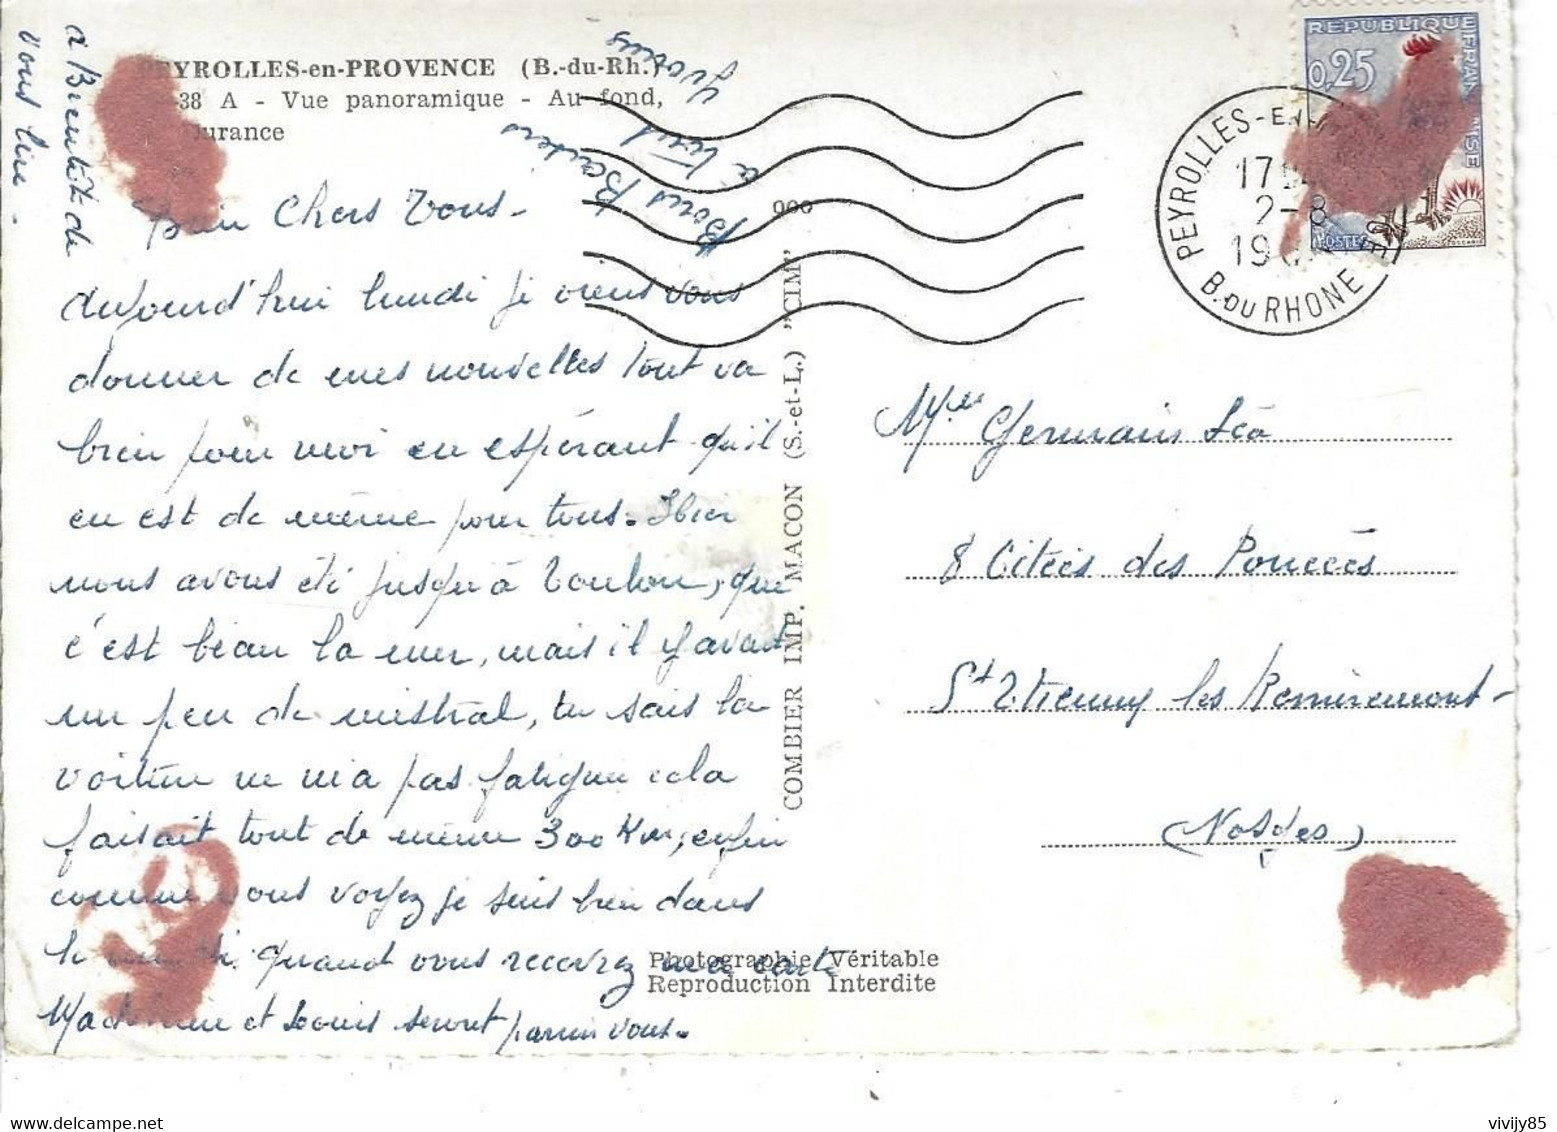 PEYROLLES-en-PROVENCE (B.-du-Rh.)
38 A - Vue panoramique - Au fond,
Durance
Bien Chers Vous -
aujourd'hui lundi je viens vous
donner de mes nouvelles tout va
bien pour moi en espérant qu'il
en est de même pour tous. Hier
nous avons été jusqu'à Toulon, que
c'est beau la mer, mais il y avait
un peu de mistral, tu sais la
voiture ne m'a pas fatigué cela
faisait tout de même 300 Km, enfin
comme vous voyez je suis bien dans
le midi. Quand vous recevrez ma carte
Madeleine et Louis seront parmi vous.
à Bientôt de
vous lire -
Bons Baisers
à tous
Yvonne
COMBIER IMP. MACON (S.-et-L.) "CIM"
Photographie Véritable
Reproduction Interdite
REPUBLIQUE FRANÇAISE
0,25
POSTES
PEYROLLES-EN-
17
2-8
19
B. DU RHONE
Mme Germain Léa
8 Citées des Poucées
St Etienny les Remiremont -
(Vosges)
vivijy85